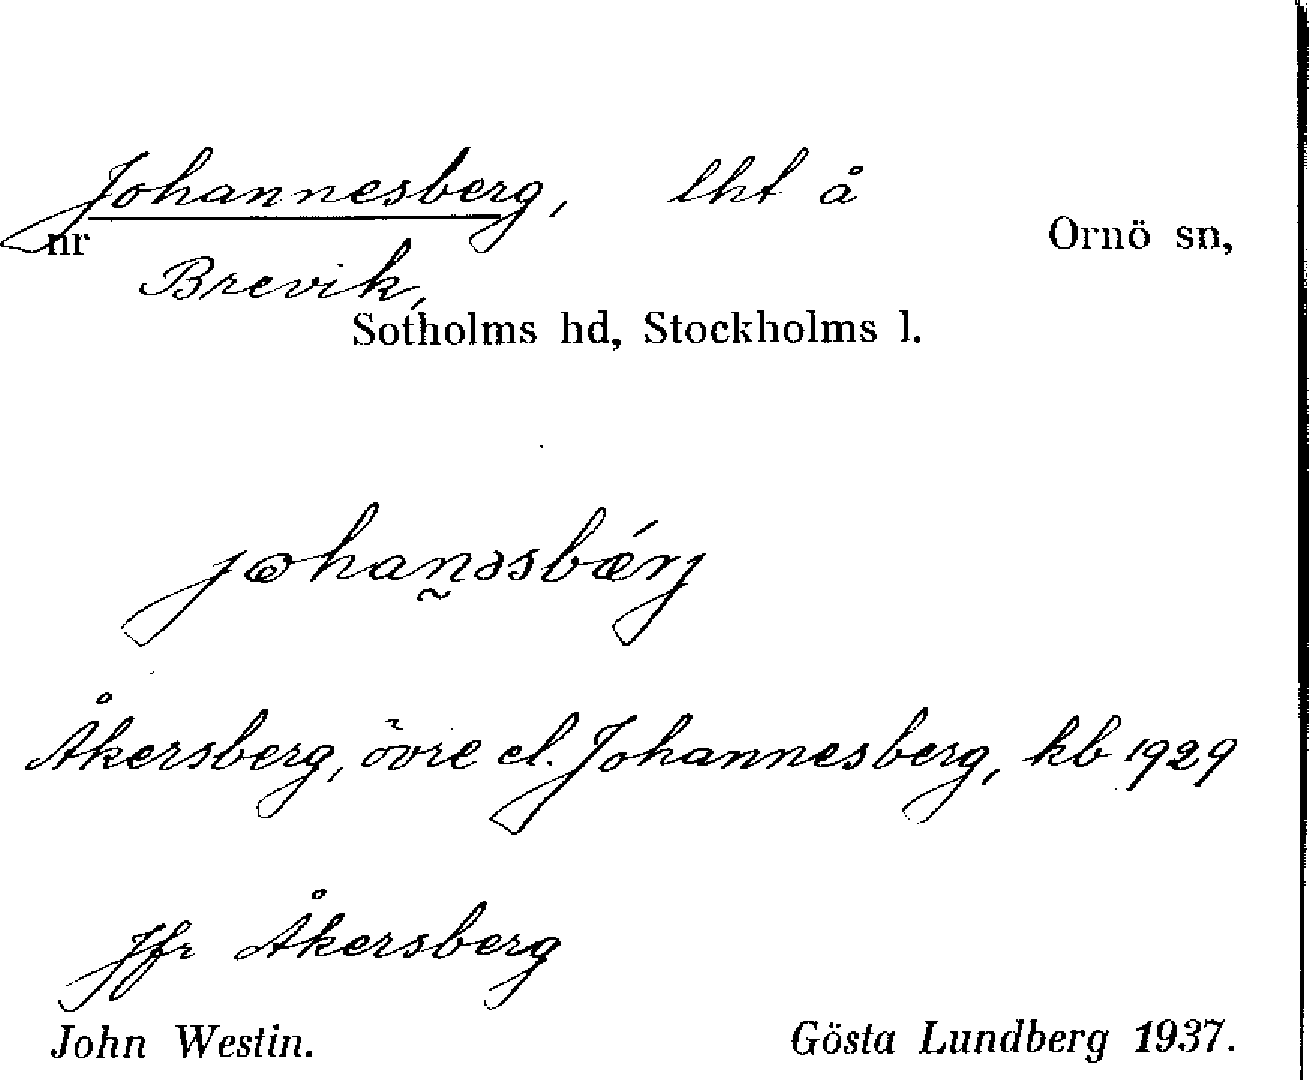 Johannesberg, lht å
nr Ornö sn,
Brevik,
Sotholms hd, Stockholms l.
johan̰əsbǽrj
Åkersberg, övre el. Johannesberg, kb 1929
Jfr Åkersberg
John Westin. Gösta Lundberg 1937.